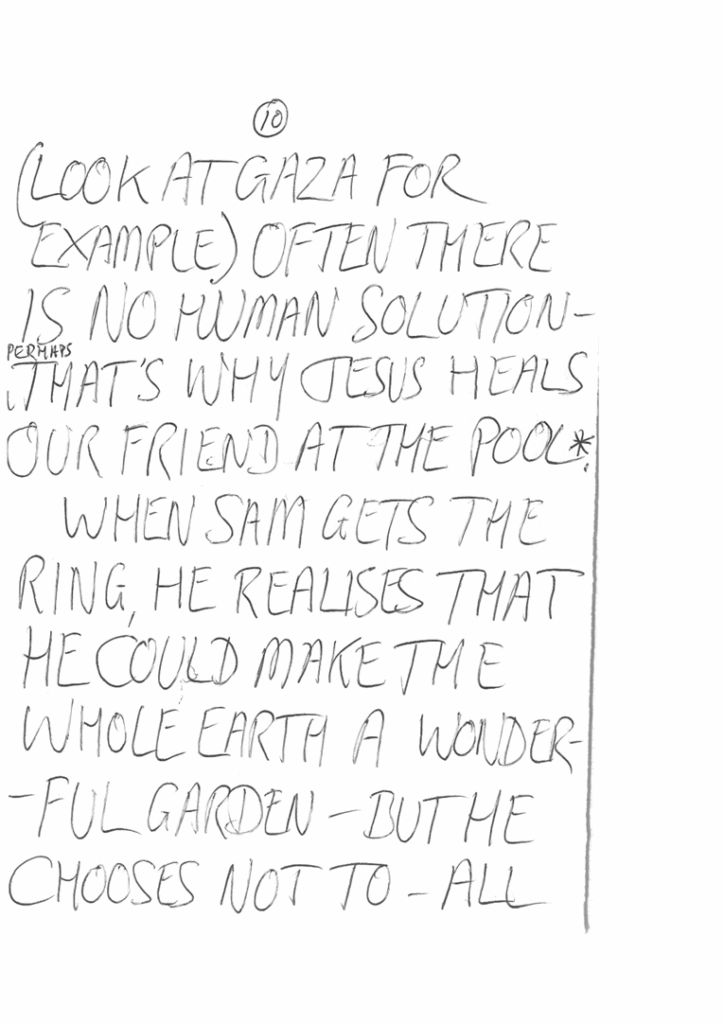 10
(LOOK AT GAZA FOR
EXAMPLE) OFTEN THERE
IS NO HUMAN SOLUTION-
PERHAPS
THAT'S WHY JESUS HEALS
OUR FRIEND AT THE POOL*.
WHEN SAM GETS THE
RING, HE REALISES THAT
HE COULD MAKE THE
WHOLE EARTH A WONDER-
-FUL GARDEN - BUT HE
CHOOSES NOT TO - ALL